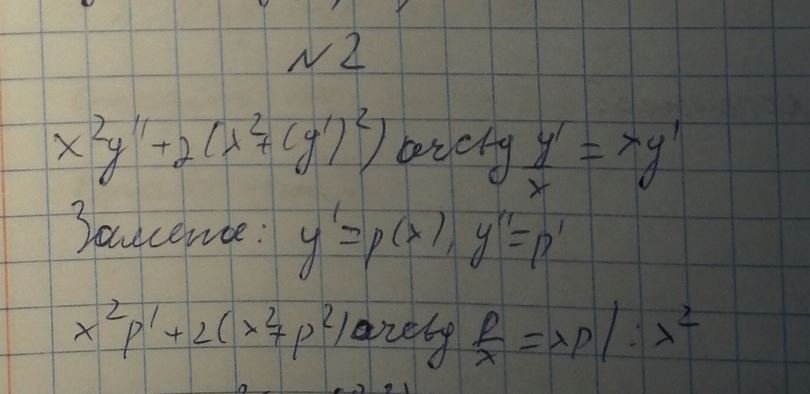 N2
x²y''+2(x²+(y')²) arctg y'/x = xy'
Замена: y'=p(x), y''=p'
x²p'+2(x²+p²) arctg p/x = xp | : x²